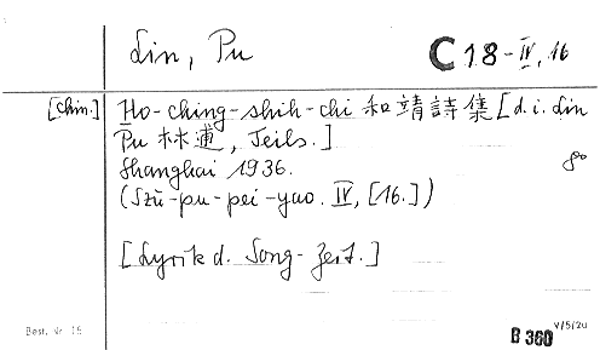 Lin, Pu
C 18-IV, 16
[chin.] Ho-ching-shih-chi 和靖詩集 [d.i. Lin
Pu 林逋, Teils.]
Shanghai 1936. 8°
(Szŭ-pu-pei-yao. IV, [16.])
[Lyrik d. Song-Zeit.]
Best. Nr. 15
B 360 V/5/2u